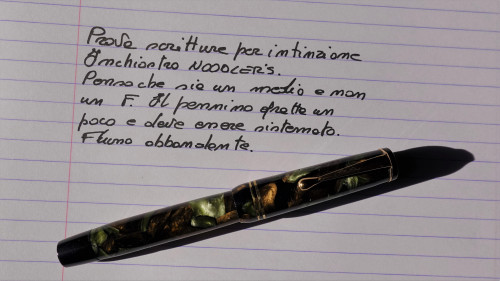 Prova scritture per intinzione
Inchiostro NOODLER'S.
Penso che sia un medio e non
un F. Il pennino gratta un
poco e deve essere sistemato.
Flusso abbondante.